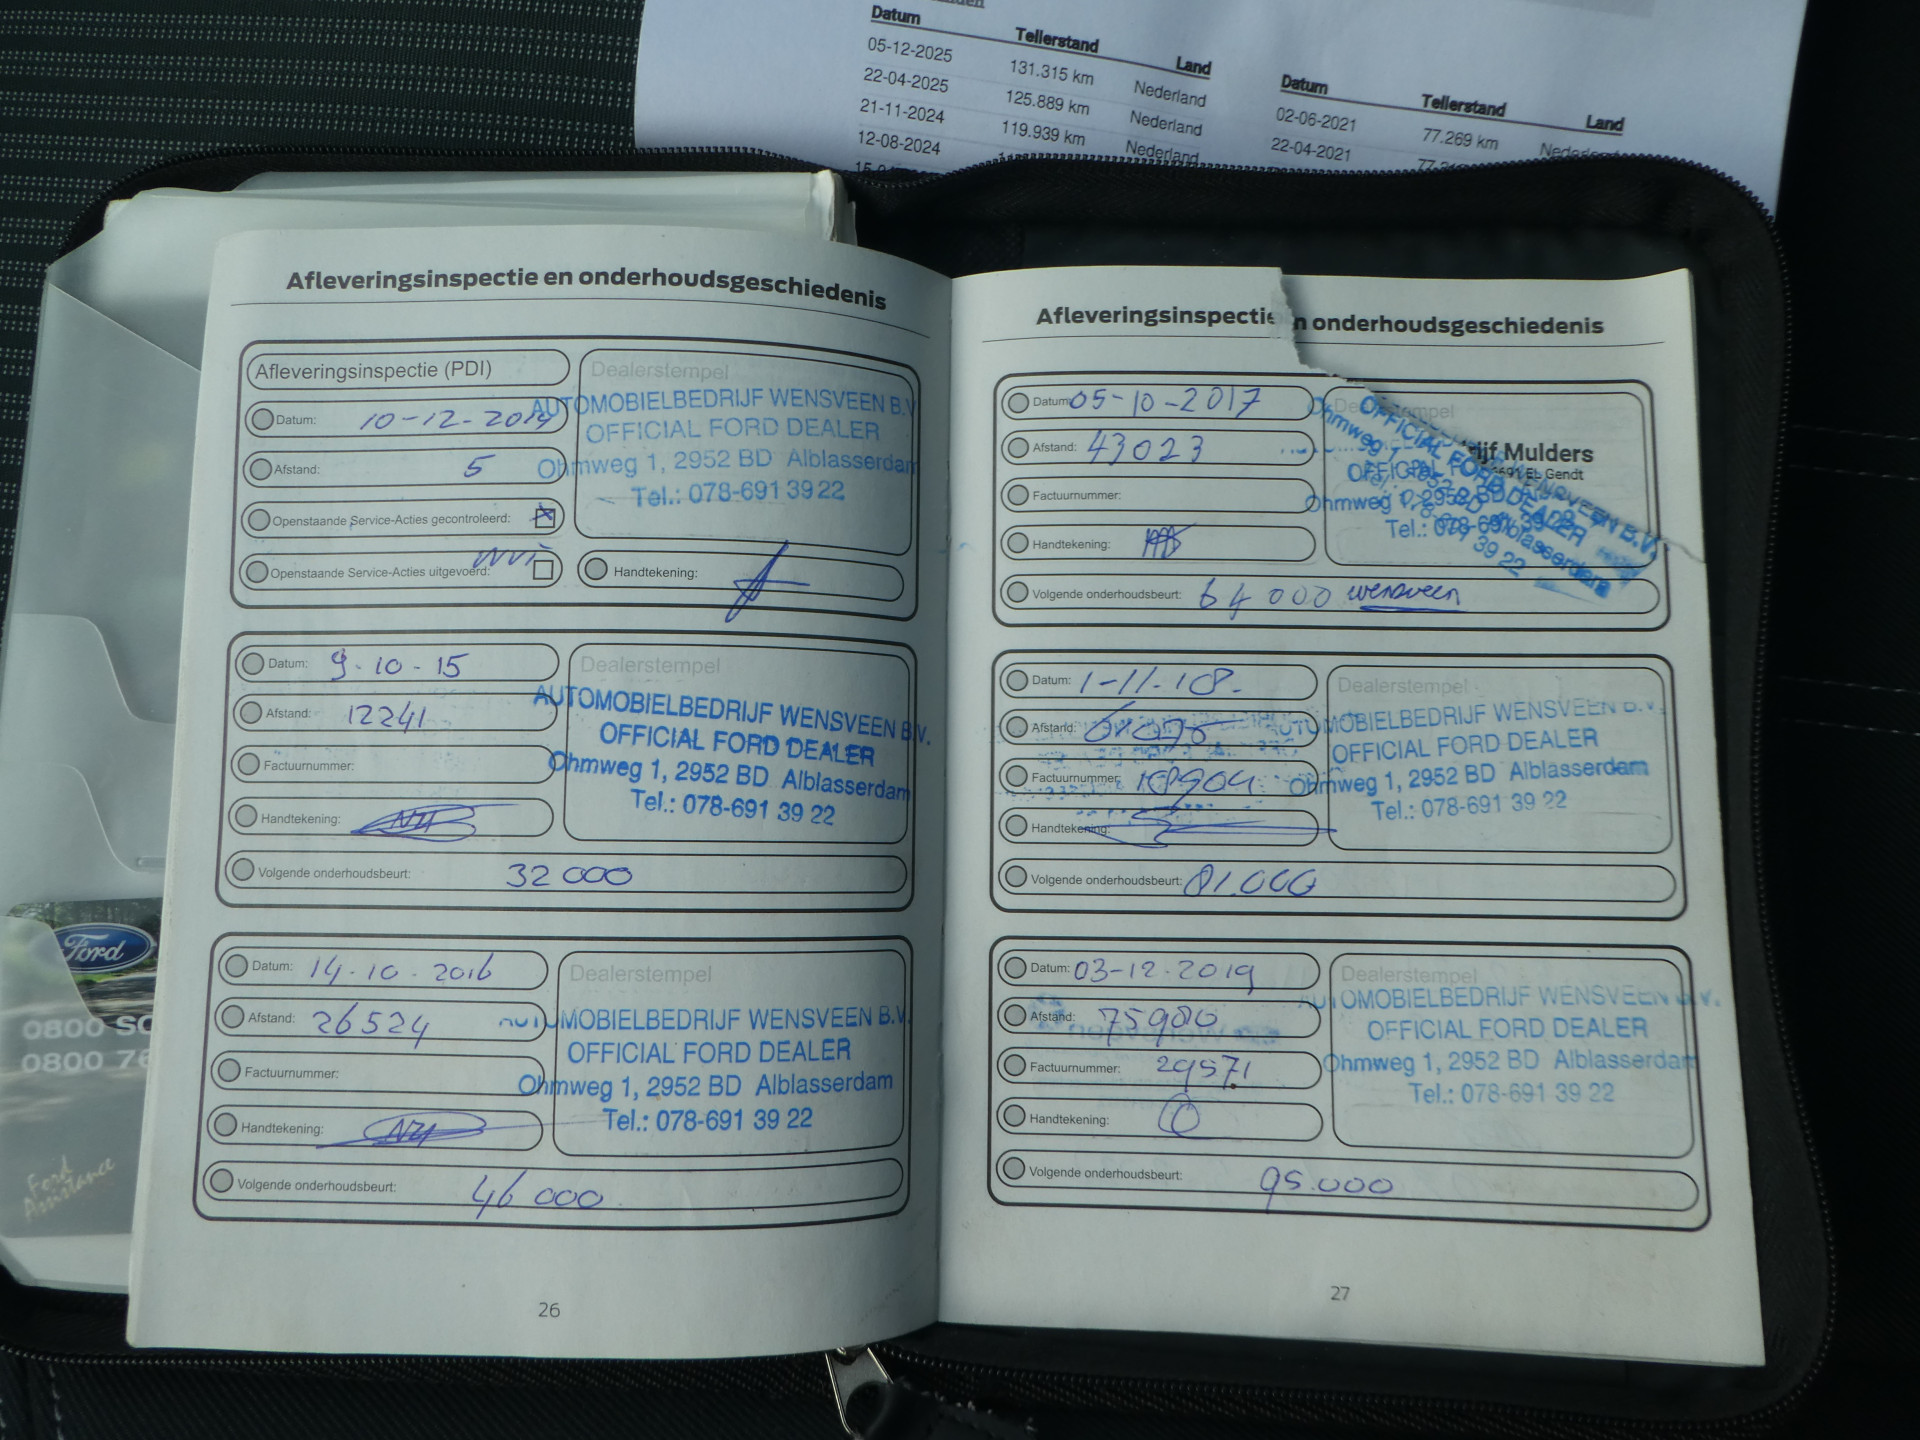 Datum Tellerstand Land
05-12-2025 131.315 km Nederland
22-04-2025 125.889 km Nederland
21-11-2024 119.939 km Nederland
12-08-2024
Datum Tellerstand Land
02-06-2021 77.269 km
22-04-2021
Afleveringsinspectie en onderhoudsgeschiedenis
Afleveringsinspectie (PDI)
Datum: 10-12-2014
Afstand: 5
Openstaande Service-Acties gecontroleerd:
Openstaande Service-Acties uitgevoerd:
Dealerstempel
AUTOMOBIELBEDRIJF WENSVEEN B.V.
OFFICIAL FORD DEALER
Ohmweg 1, 2952 BD Alblasserdam
Tel.: 078-691 39 22
Handtekening:
Datum: 9-10-15
Afstand: 12241
Factuurnummer:
Handtekening:
Dealerstempel
AUTOMOBIELBEDRIJF WENSVEEN B.V.
OFFICIAL FORD DEALER
Ohmweg 1, 2952 BD Alblasserdam
Tel.: 078-691 39 22
Volgende onderhoudsbeurt: 32 000
Datum: 14-10-2016
Afstand: 26524
Factuurnummer:
Handtekening:
Dealerstempel
AUTOMOBIELBEDRIJF WENSVEEN B.V.
OFFICIAL FORD DEALER
Ohmweg 1, 2952 BD Alblasserdam
Tel.: 078-691 39 22
Volgende onderhoudsbeurt: 46 000
26
Afleveringsinspectie n onderhoudsgeschiedenis
Datum: 05-10-2017
Afstand: 43023
Factuurnummer:
Handtekening:
ijf Mulders
Gendt
OFFICIAL FORD DEALER
Volgende onderhoudsbeurt: 64 000 wensveen
Datum: 1-11-18.
Afstand:
Factuurnummer: 18904
Handtekening:
Dealerstempel
AUTOMOBIELBEDRIJF WENSVEEN B.V.
OFFICIAL FORD DEALER
Ohmweg 1, 2952 BD Alblasserdam
Tel.: 078-691 39 22
Volgende onderhoudsbeurt: 81.000
Datum: 03-12-2019
Afstand: 75980
Factuurnummer: 29571
Handtekening:
Dealerstempel
AUTOMOBIELBEDRIJF WENSVEEN B.V.
OFFICIAL FORD DEALER
Ohmweg 1, 2952 BD Alblasserdam
Tel.: 078-691 39 22
Volgende onderhoudsbeurt: 95.000
27
Ford
0800
0800
Ford
Assistance